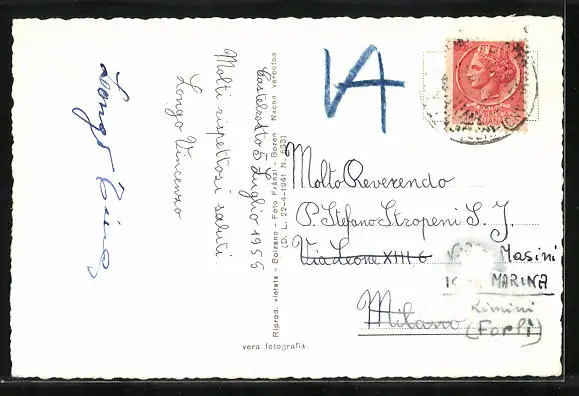 Castelrotto 5 Luglio 1956
Molti rispettosi saluti
Longo Vincenzo
Longo
Riprod. vietata - Bolzano - Foto Fränzl - Bozen Nachd verboten
(D. L. 22-4-1941 N. 633)
vera fotografia
Molto Reverendo
P. Stefano Stropeni S. J.
Via Leone XIII, 6
Masini
MARINA
Milano
Rimini
(Forlì)